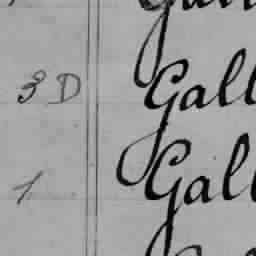 3 D Gall
1 Gall